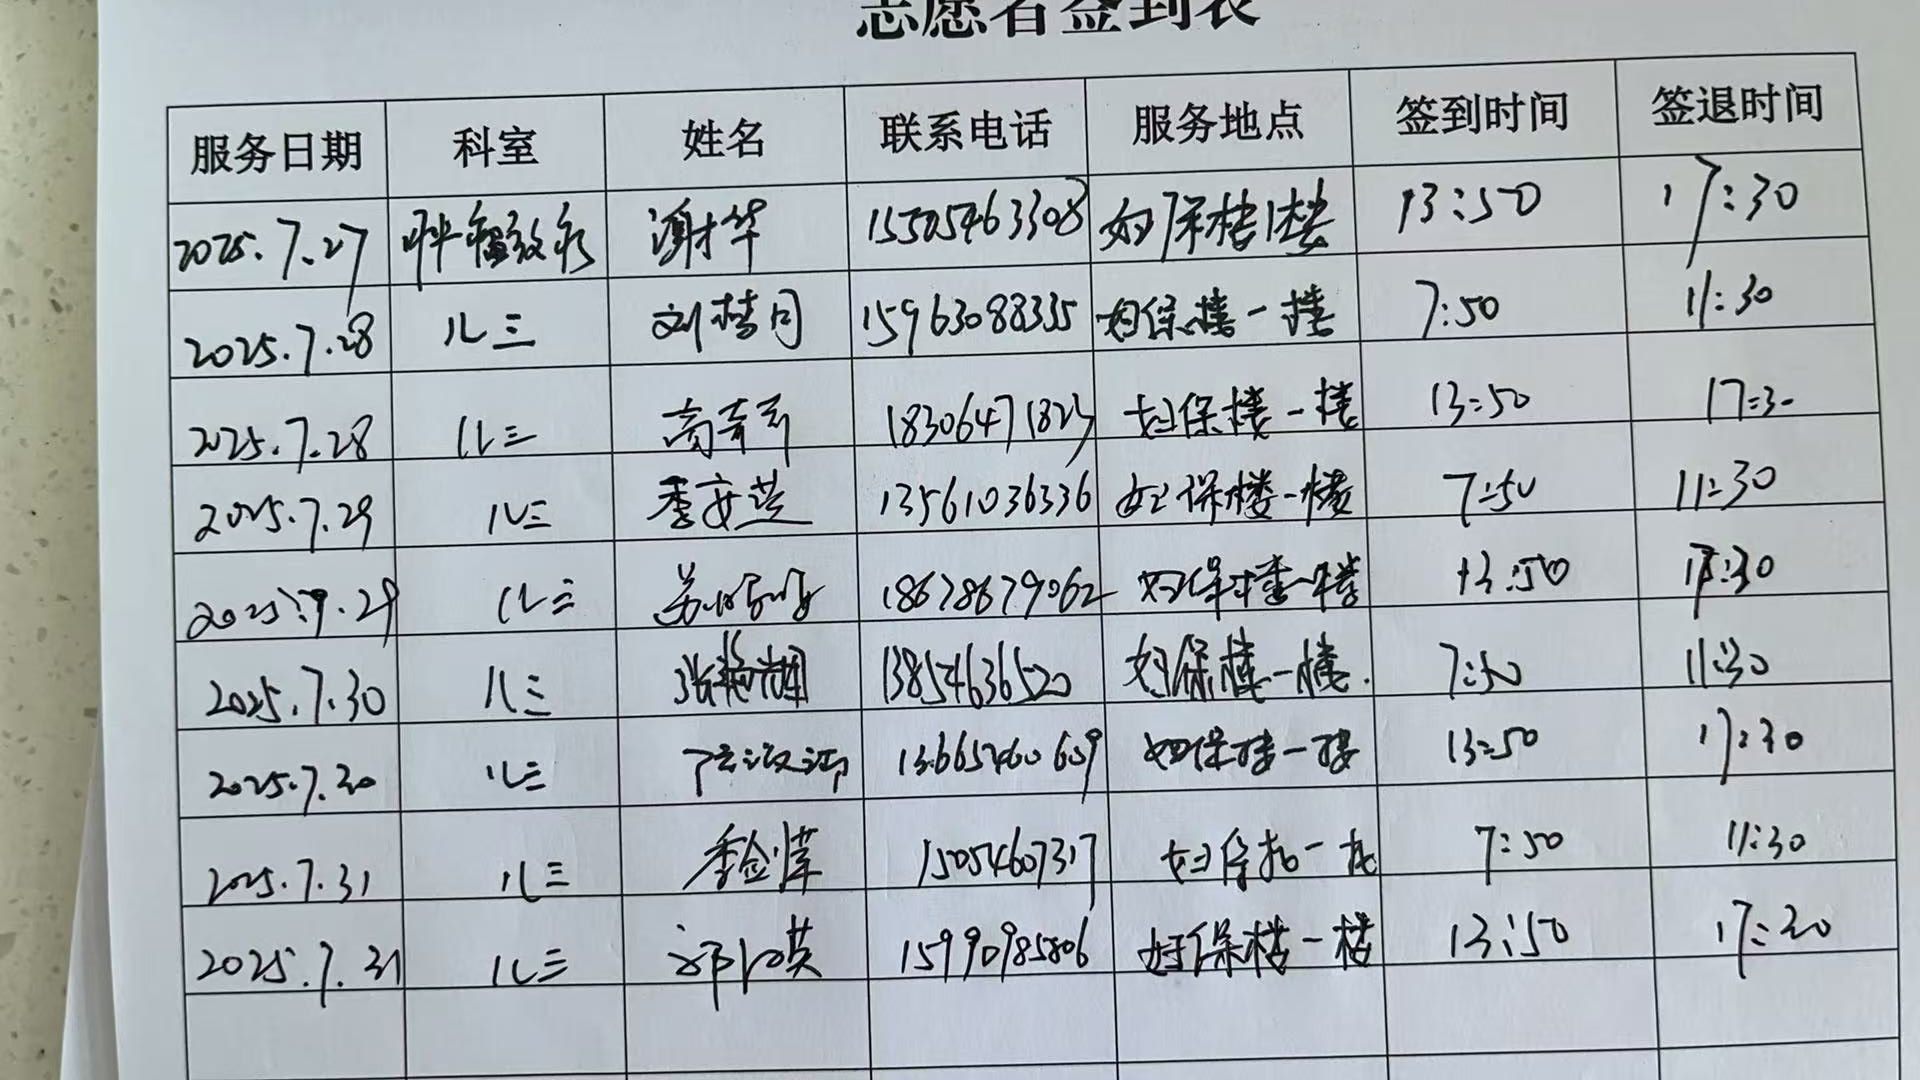 志愿者签到表
服务日期 科室 姓名 联系电话 服务地点 签到时间 签退时间
2025.7.27 谢华 15505463308 妇保楼1楼 13:50 17:30
2025.7.28 儿三 刘梦月 15963088335 妇保楼一楼 7:50 11:30
2025.7.28 儿三 18306471823 妇保楼一楼 13:50 17:30
2025.7.29 儿三 李安芝 13561036336 妇保楼一楼 7:50 11:30
2025.7.29 儿三 18678679062 妇保楼一楼 13:50 17:30
2025.7.30 儿三 13854636520 妇保楼一楼. 7:50 11:30
2025.7.30 儿三 妇保楼一楼 13:50 17:30
2025.7.31 儿三 15054607317 妇保楼一楼 7:50 11:30
2025.7.31 儿三 15990985806 妇保楼一楼 13:50 17:30